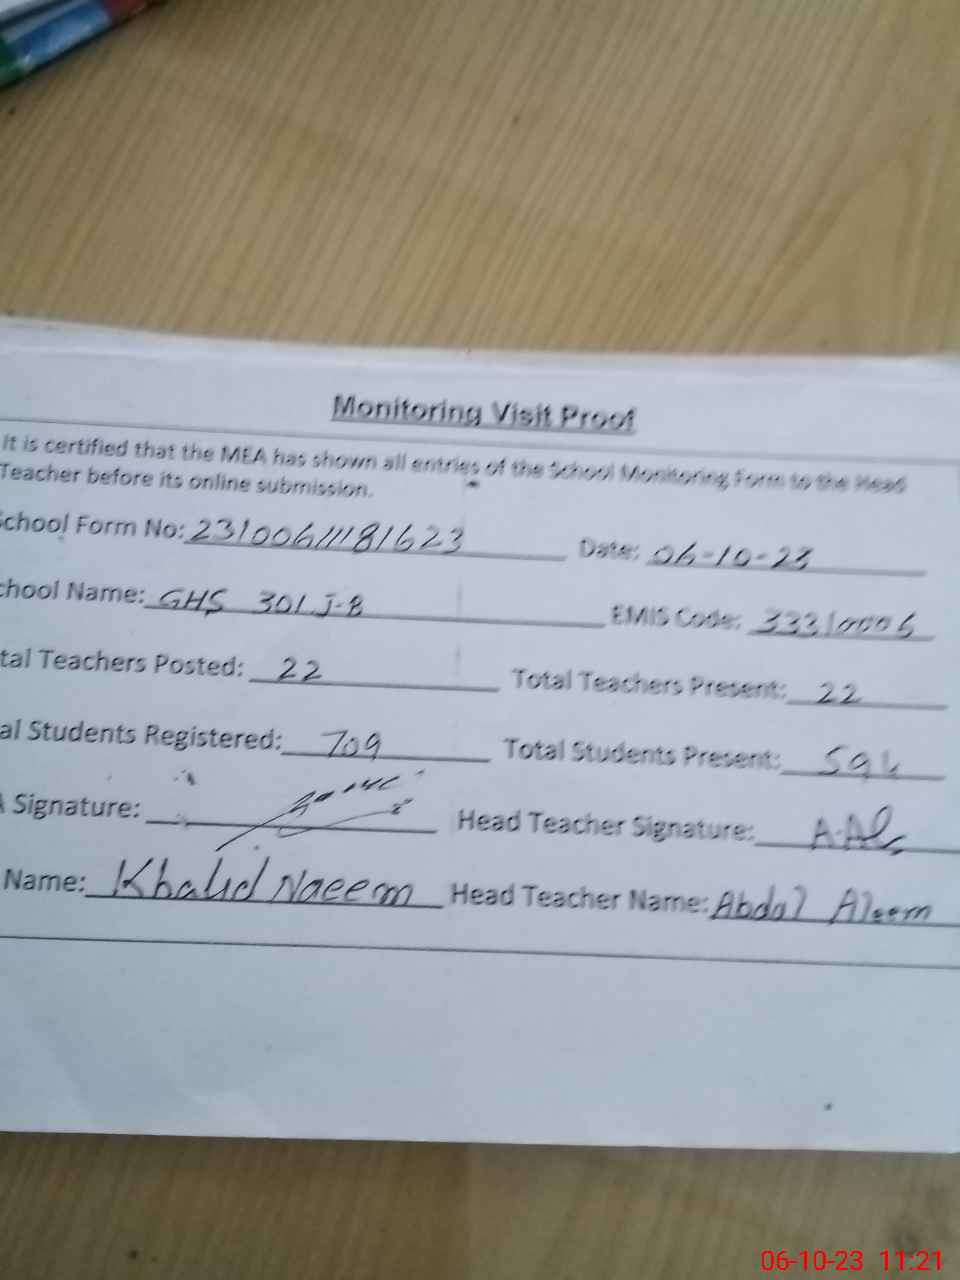 Monitoring Visit Proof
It is certified that the MEA has shown all entries of the School Monitoring Form to the Head
Teacher before its online submission.
School Form No: 23100611181623 Date: 06-10-23
chool Name: GHS 301 J-B EMIS Code: 33310006
tal Teachers Posted: 22 Total Teachers Present: 22
al Students Registered: 709 Total Students Present:
A Signature: Head Teacher Signature:
Name: Khalid Naeem Head Teacher Name: Abdal Aleem
06-10-23 11:21